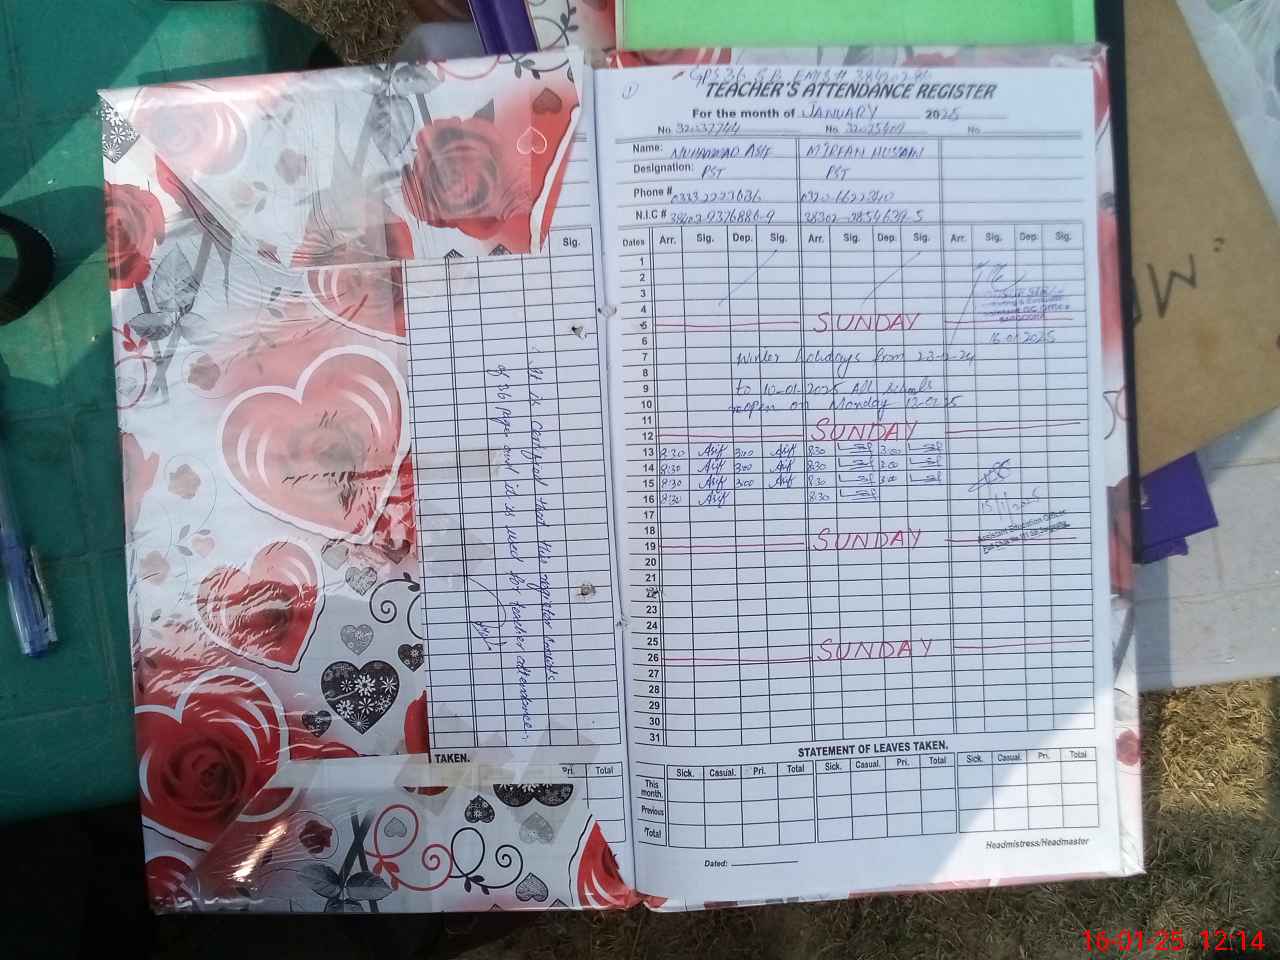 Sig.
It is certified that this register consists
of 36 pages and it is used for teacher attendance.
TAKEN.
Pri. Total
①
GPS 36 S.B EMIS # 38420286
TEACHER'S ATTENDANCE REGISTER
For the month of JANUARY 2025
No. 32037744 No. 32075409 No
Name: MUHAMMAD ASIF M IRFAN HUSSAIN
Designation: PST PST
Phone # 0333 2223636 0320-6622340
N.I.C # 38403-9376886-9 38302-2854639-5
Dates Arr. Sig. Dep. Sig. Arr. Sig. Dep. Sig. Arr. Sig. Dep. Sig.
1
2
3
4
5 SUNDAY
6 16.01.2025
7 Winter holidays from 23-12-24
8
9 to 10-01-2025 All schools
10 reopen on Monday 13-01-25
11
12 SUNDAY
13 8:30 Asif 3:00 Asif 8:30 3:00
14 8:30 Asif 3:00 Asif 8:30 3:00
15 8:30 Asif 3:00 Asif 8:30 3:00
16 8:30 Asif 8:30
15/1/2025
17
18
Assistant Education Officer
19 SUNDAY
20
21
22
23
24
25
26 SUNDAY
27
28
29
30
31
STATEMENT OF LEAVES TAKEN.
Sick. Casual. Pri. Total Sick. Casual. Pri. Total Sick. Casual. Pri. Total
This month.
Previous
Total
Headmistress/Headmaster
Dated:
M
16-01-25 12:14